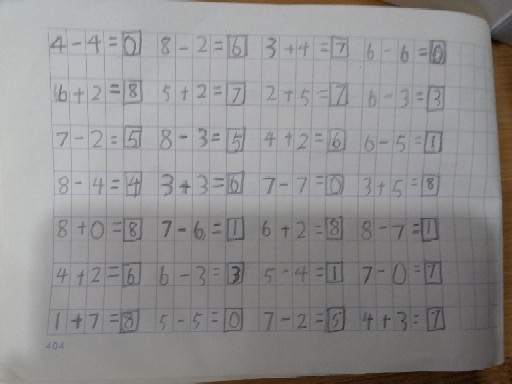 4-4=0 8-2=6 3+4=7 6-6=0
6+2=8 5+2=7 2+5=7 6-3=3
7-2=5 8-3=5 4+2=6 6-5=1
8-4=4 3+3=6 7-7=0 3+5=8
8+0=8 7-6=1 6+2=8 8-7=1
4+2=6 6-3=3 5-4=1 7-0=7
1+7=8 5-5=0 7-2=5 4+3=7
404